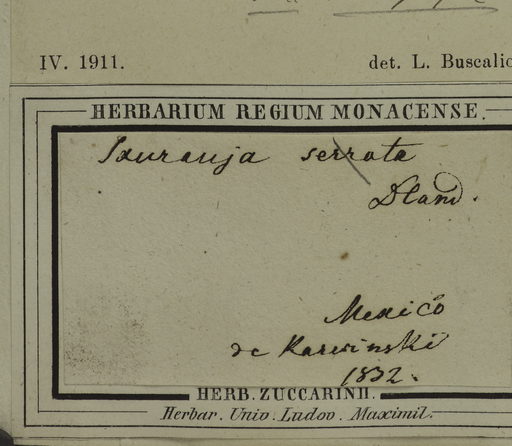 IV. 1911.
det. L. Buscalio
HERBARIUM REGIUM MONACENSE.
Sauranja serrata
Mexico
de Karwinski
1832.
HERB. ZUCCARINII.
Herbar. Univ. Ludov. Maximil.